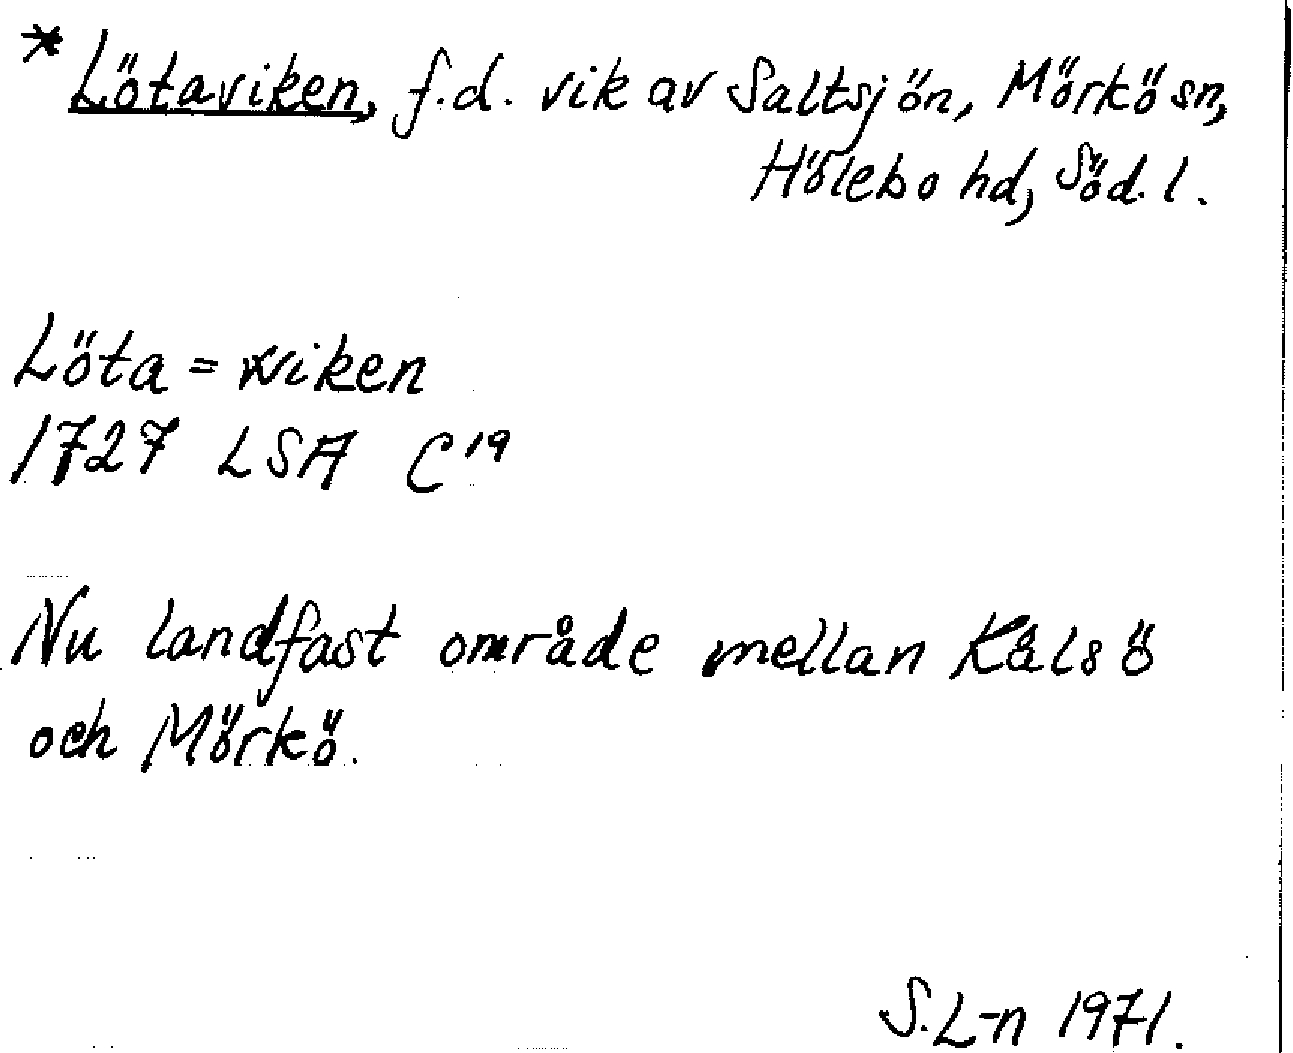 * Lötaviken, f.d. vik av Saltsjön, Mörkö sn,
Hölebo hd, Söd. l.
Löta = wiken
1727 LSA C¹⁹
Nu landfast område mellan Kålsö
och Mörkö.
S. L-n 1971.